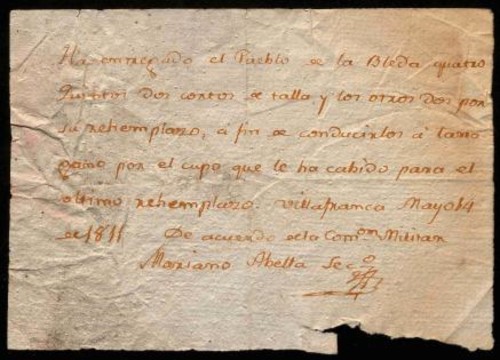 Ha entregado el Pueblo de la Bleda quatro
Quintos dos cortos de talla, y los otros dos por
su rehemplazo, á fin de conducirlos á Tarra
gona por el cupo que le ha cabido para el
ultimo rehemplazo. Villafranca Mayo 14
de 1811 De acuerdo de la Com.on Militar
Mariano Abella Sec.o